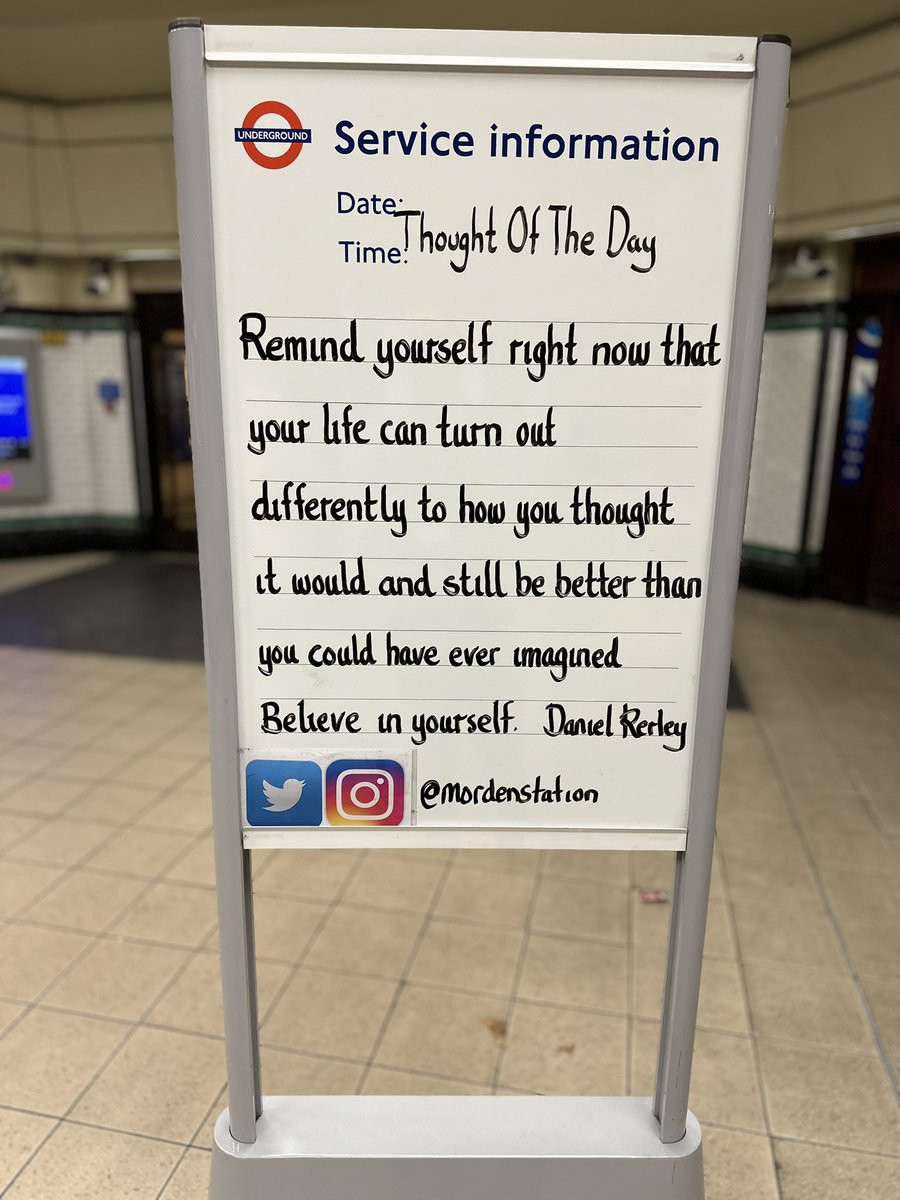 UNDERGROUND
Service information
Date:
Time:
Thought Of The Day
Remind yourself right now that
your life can turn out
differently to how you thought
it would and still be better than
you could have ever imagined
Believe in yourself. Daniel Kerley
@mordenstation